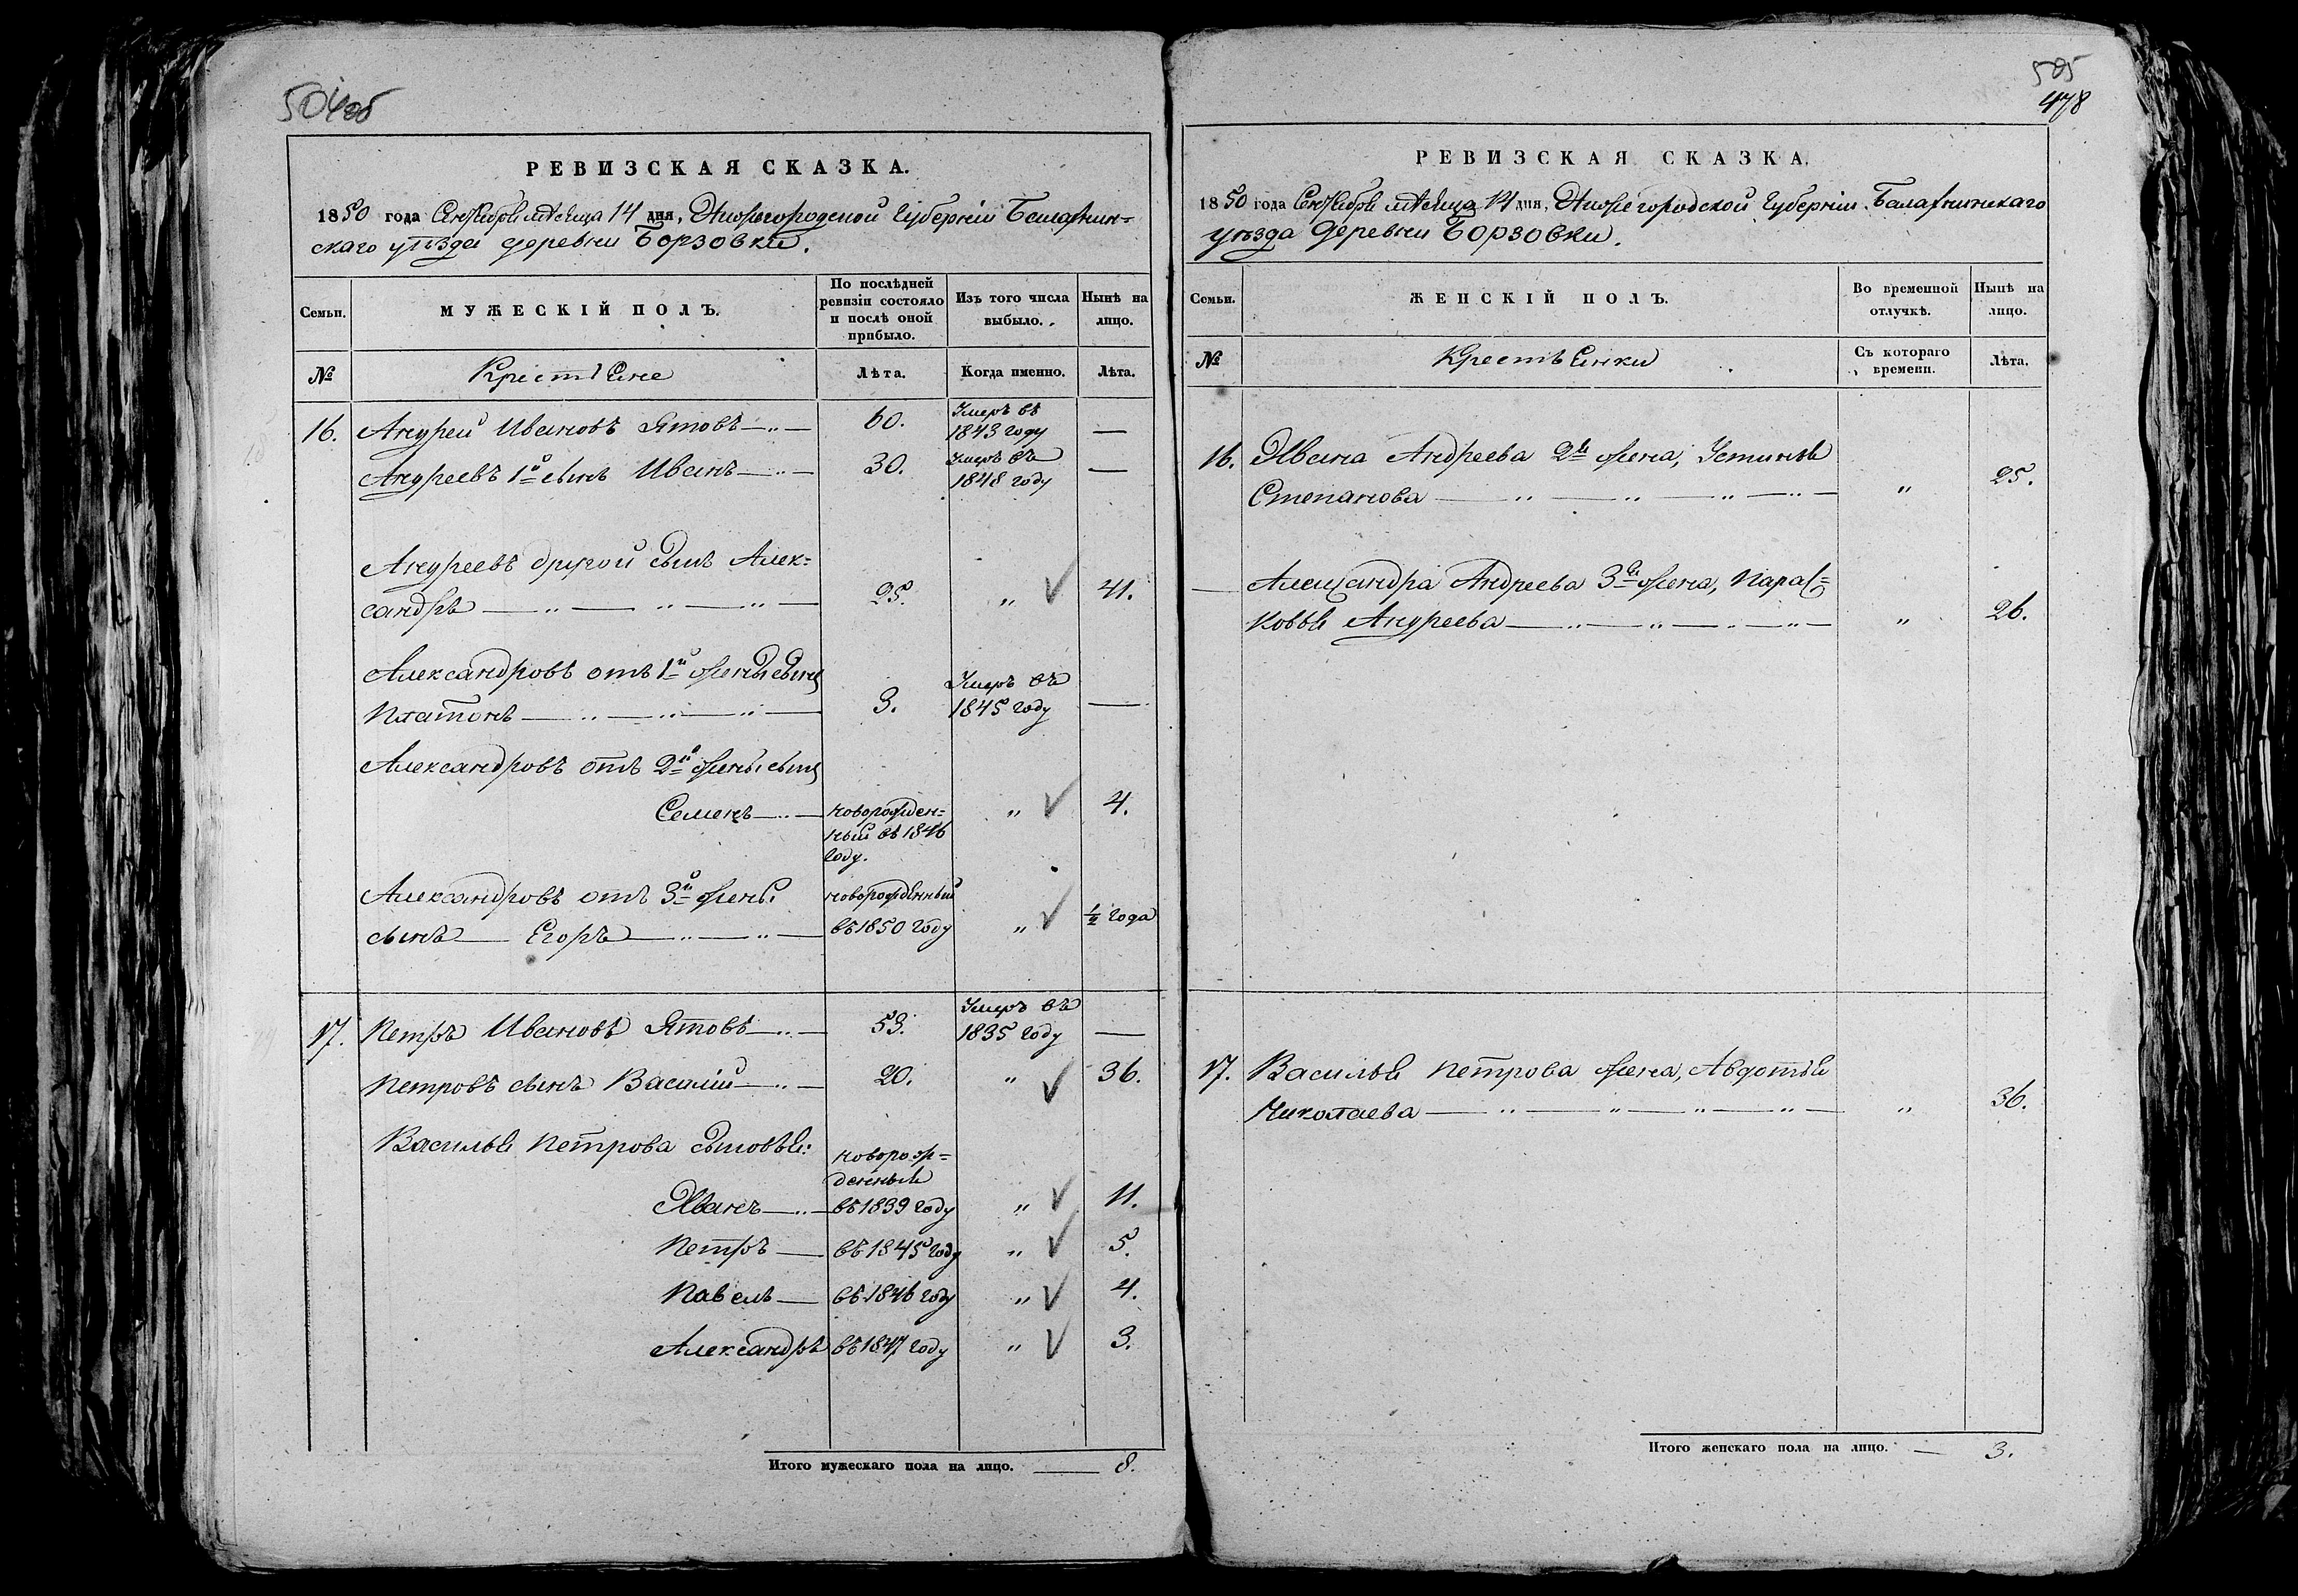 504об
РЕВИЗСКАЯ СКАЗКА.
1850 года Сентября мѣсяца 14 дня, Нижегородской Губерніи Балахнин=
скаго уѣзда деревни Борзовки.
Семьи.
МУЖЕСКІЙ ПОЛЪ.
По послѣдней
ревизіи состояло
и послѣ оной
прибыло.
Изъ того числа
выбыло.
Нынѣ на
лицо.
№
Крестьяне
Лѣта.
Когда именно.
Лѣта.
16. Андрей Ивановъ Ятовъ 60. Умеръ въ
1843 году —
Андреевъ 1й сынъ Иванъ 30. Умеръ въ
1848 году —
Андреевъ другой сынъ Алек=
сандръ 25. „ 41.
Александровъ отъ 1й жены сынъ
Платонъ 3. Умеръ въ
1845 году —
Александровъ отъ 2й жены сынъ
Семенъ новорожден=
ный въ 1846
году. „ 4.
Александровъ отъ 3й жены новорожденный
сынъ Егоръ въ 1850 году „ ½ года
17. Петръ Ивановъ Ятовъ 53. Умеръ въ
1835 году —
Петровъ сынъ Василій 20. „ 36.
Василья Петрова сыновья: новорож=
денные
Иванъ въ 1839 году „ 11.
Петръ въ 1845 году „ 5.
Павелъ въ 1846 году „ 4.
Александръ въ 1847 году „ 3.
Итого мужескаго пола на лицо. — 8.
505
478
РЕВИЗСКАЯ СКАЗКА.
1850 года Сентября мѣсяца 14 дня, Нижегородской Губерніи Балахнинскаго
уѣзда деревни Борзовки.
Семьи.
ЖЕНСКІЙ ПОЛЪ.
Во временной
отлучкѣ.
Нынѣ на
лицо.
№
Крестьянки
Съ котораго
времени.
Лѣта.
16. Ивана Андреева 2я жена, Устинья
Степанова „ 25.
— Александра Андреева 3я жена, Парас=
ковья Андреева „ 26.
17. Василья Петрова жена, Авдотья
Николаева „ 36.
Итого женскаго пола на лицо. — 3.